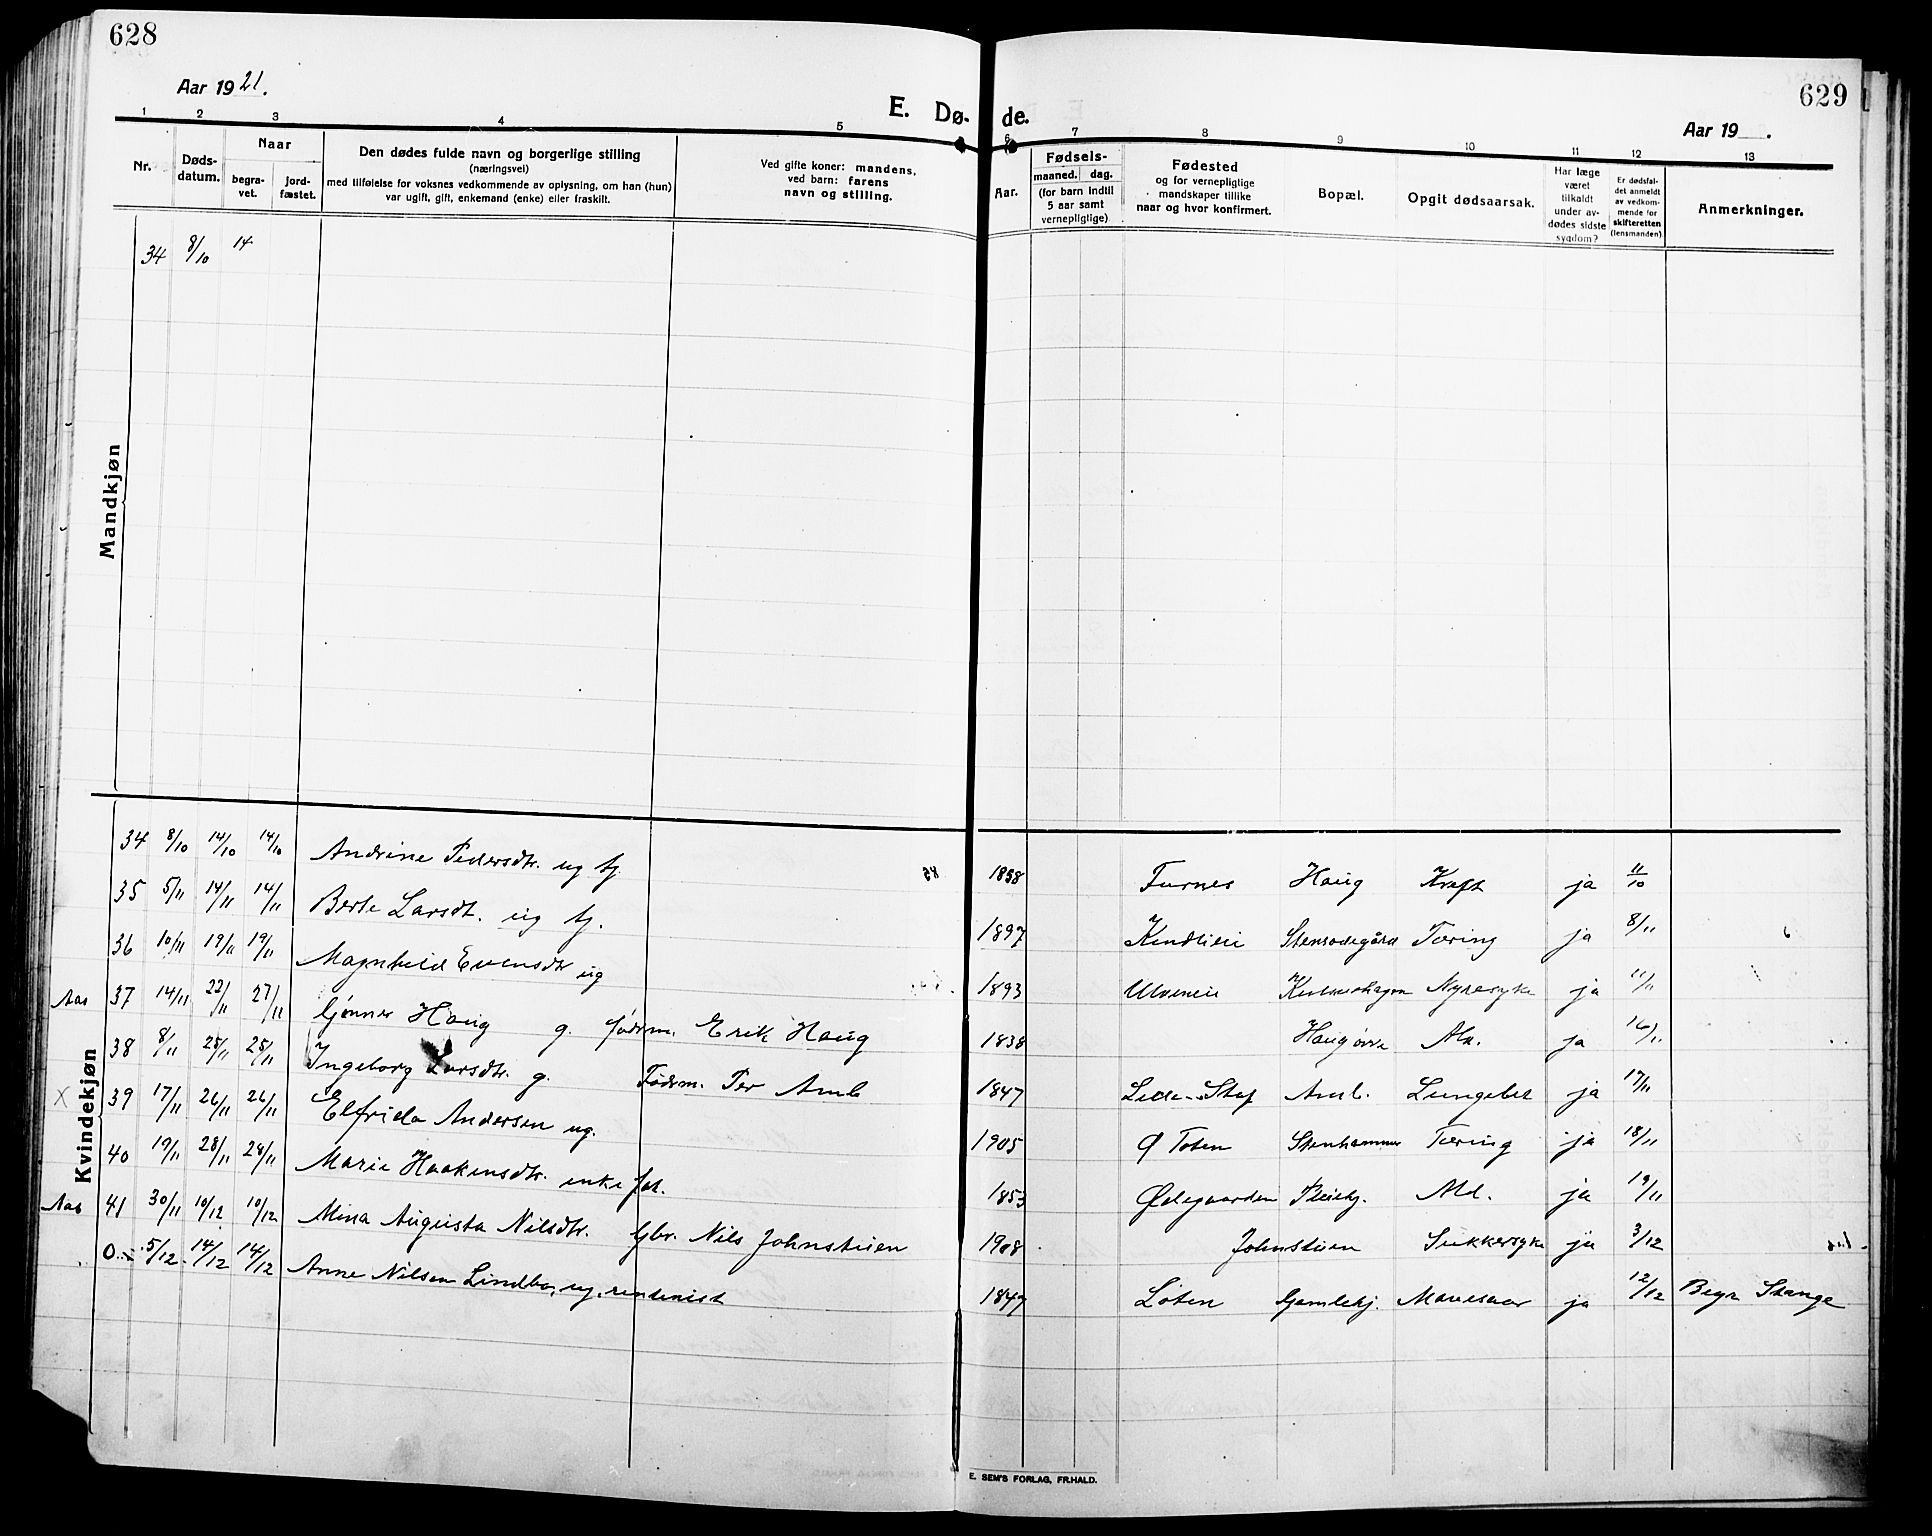 628
Aar 1921.
E. Dø- de.
629
Aar 19 .
1 2 3 4 5 6 7 8 9 10 11 12 13
Nr.
Døds-
datum.
Naar
begra-
vet.
jord-
fæstet.
Den dødes fulde navn og borgerlige stilling
(næringsvei)
med tilføielse for voksnes vedkommende av oplysning, om han (hun)
var ugift, gift, enkemand (enke) eller fraskilt.
Ved gifte koner: mandens,
ved barn: farens
navn og stilling.
Aar.
Fødsels-
maaned. dag.
(for barn indtil
5 aar samt
vernepligtige)
Fødested
og for vernepligtige
mandskaper tillike
naar og hvor konfirmert.
Bopæl.
Opgit dødsaarsak.
Har læge
været
tilkaldt
under av-
dødes sidste
sygdom?
Er dødsfal-
det anmeldt
av vedkom-
mende for
skifteretten
(lensmanden).
Anmerkninger.
Mandkjøn
34 8/10 14
Kvindekjøn
34 8/10 14/10 14/10 Andrine Pedersdtr. ug tj. 1858 Furnes Haug Kræft ja 11/10
35 5/11 14/11 14/11 Berte Larsdt. ug tj. 1897 Kindlieie Tæring ja 8/11
36 10/11 19/11 19/11 Magnhild Evensdtr ug 1893 Ulveneie Nyresyke ja 11/11
Aas 37 14/11 22/11 27/11 Gjønner Haug g. fødrm. Erik Haug 1838 Ald. ja 16/11
38 8/11 25/11 25/11 Ingeborg Larsdtr. g. Fødrm. Per Aml 1847 Aml. ja 17/11
X 39 17/11 26/11 26/11 Elfrida Andersen ug. 1905 Ø Toten Stenhammer Tæring ja 18/11
40 19/11 28/11 28/11 Marie Haakensdtr. enke 1853 Ødegaarden Pleiehj. Ald. ja 19/11
Aas 41 30/11 10/12 10/12 Mina Augusta Nilsdtr. Gbr. Nils Johnstuen 1908 Johnstuen Sukkersyke ja 3/12
0 5/12 14/12 14/12 Anne Nilsen Lindbo, ug. rentenist 1847 Løten Gamlehj. Mavesaar ja 12/12 Begr Stange
E. SEM'S FORLAG, FR.HALD.